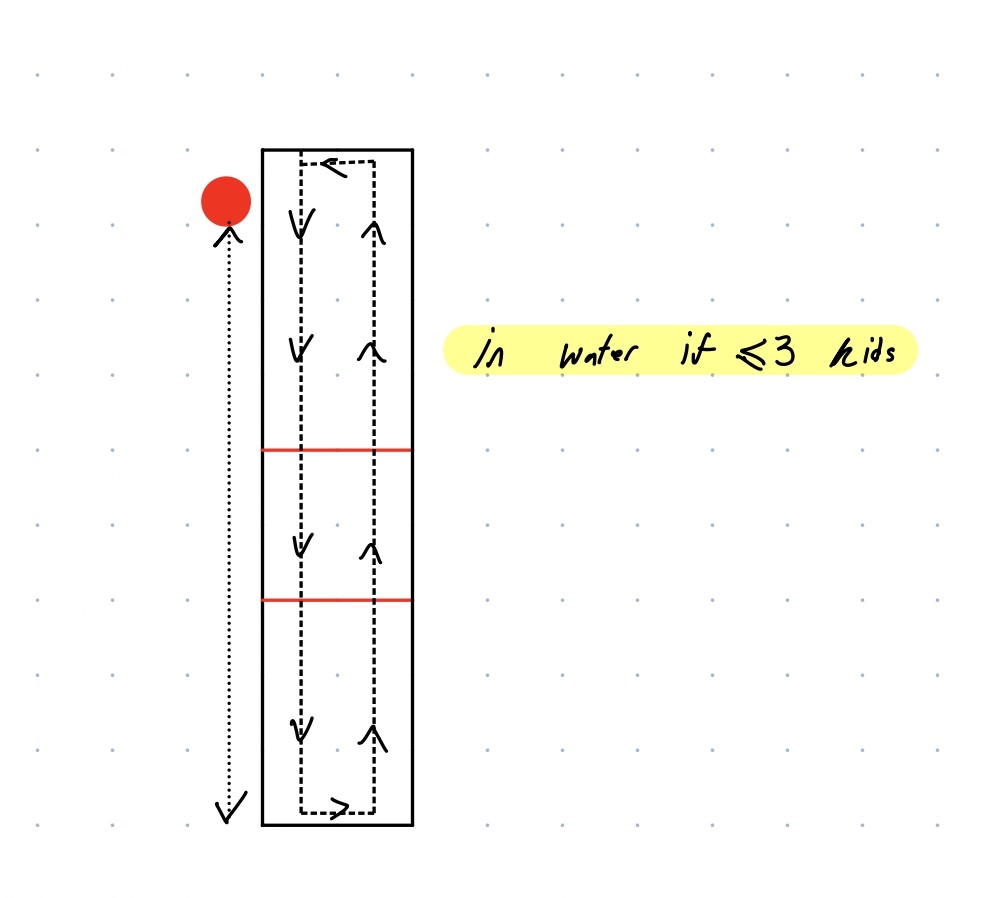 in water if ≤3 kids